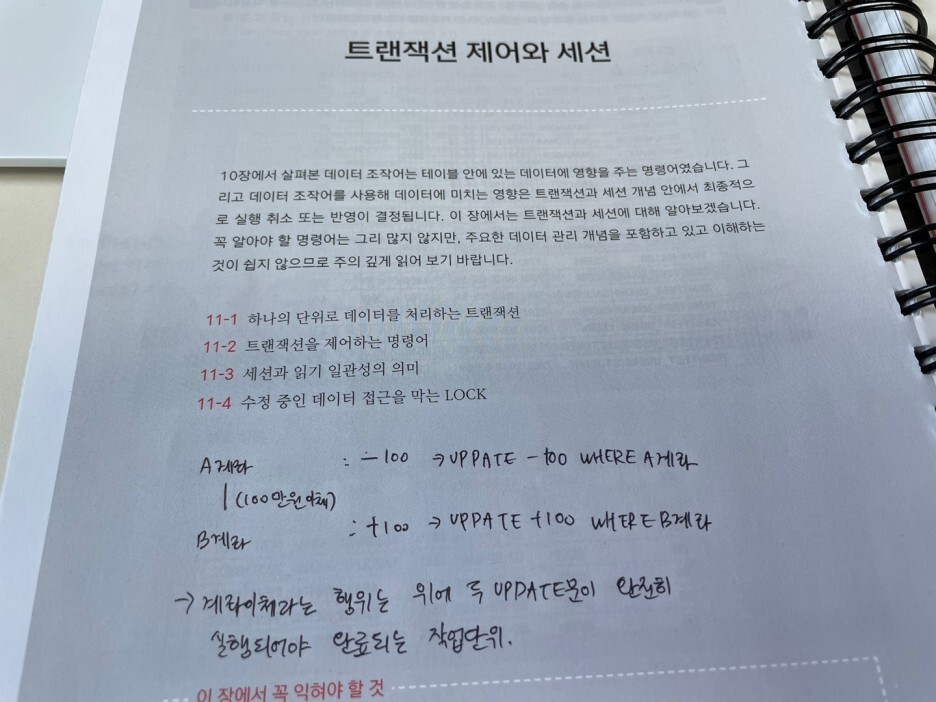 트랜잭션 제어와 세션
10장에서 살펴본 데이터 조작어는 테이블 안에 있는 데이터에 영향을 주는 명령어였습니다. 그
리고 데이터 조작어를 사용해 데이터에 미치는 영향은 트랜잭션과 세션 개념 안에서 최종적으
로 실행 취소 또는 반영이 결정됩니다. 이 장에서는 트랜잭션과 세션에 대해 알아보겠습니다.
꼭 알아야 할 명령어는 그리 많지 않지만, 주요한 데이터 관리 개념을 포함하고 있고 이해하는
것이 쉽지 않으므로 주의 깊게 읽어 보기 바랍니다.
11-1 하나의 단위로 데이터를 처리하는 트랜잭션
11-2 트랜잭션을 제어하는 명령어
11-3 세션과 읽기 일관성의 의미
11-4 수정 중인 데이터 접근을 막는 LOCK
A계좌 : -100 → UPPATE -100 WHERE A계좌
(100만원이체)
B계좌 : +100 → UPPATE +100 WHERE B계좌
→ 계좌이체라는 행위는 위에 두 UPDATE문이 완전히
실행되어야 완료되는 작업단위.
이 장에서 꼭 익혀야 할 것